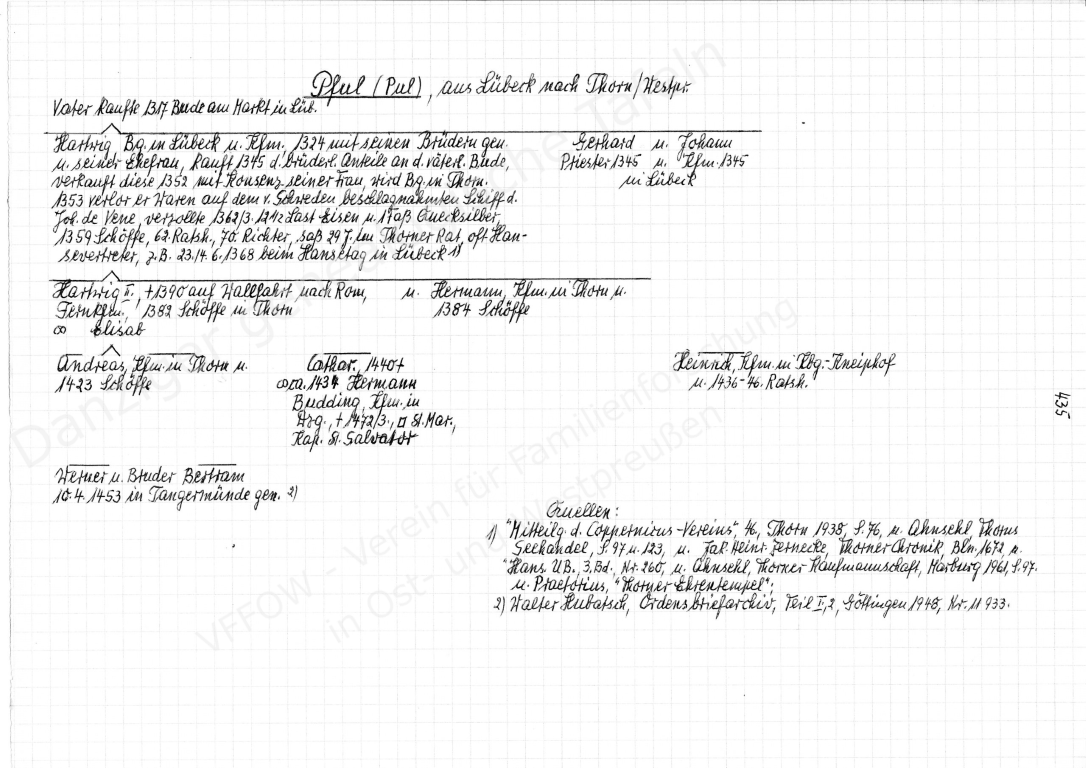 Pful (Pul), aus Lübeck nach Thorn/Westpr.
Vater kaufte 1317 Bude am Markt in Lüb.
Hartwig Bg. in Lübeck u. Kfm. 1324 mit seinen Brüdern gen.
u. seiner Ehefrau, kauft 1345 d. brüderl. Anteile an d. väterl. Bude,
verkauft diese 1352 mit Konsenz seiner Frau, wird Bg. in Thorn.
1353 verlor er Waren auf dem v. Schweden beschlagnahmten Schiff d.
Joh. de Vene, verzollte 1362/3 12 1/2 Last Eisen u. 1 Faß Quecksilber,
1359 Schöffe, 62. Ratsh., 70. Richter, saß 29 J. im Thorner Rat, oft Han-
severtreter, z.B. 23.14.6.1368 beim Hansetag in Lübeck 1)
Gerhard u. Johann
Priester 1345 u. Kfm. 1345
in Lübeck
Hartwig II., +1390 auf Wallfahrt nach Rom,
Fernkfm., 1382 Schöffe in Thorn
∞ Elisab
u. Hermann, Kfm. in Thorn u.
1384 Schöffe
Andreas, Kfm. in Thorn u.
1423 Schöffe
Cathar., 1440+
∞ ca. 1434 Hermann
Budding, Kfm. in
Dzg., +1472/3, □ St. Mar.,
Kap. St. Salvator
Heinrich, Kfm. in Kbg.-Kneiphof
u. 1436-46. Ratsh.
435
Werner u. Bruder Bertram
10.4.1453 in Tangermünde gen. 2)
Quellen:
1) "Mitteilg. d. Coppernicus-Vereins", 46, Thorn 1938, S. 76, u. Ahnsehl, Thorns
Seehandel, S. 97 u. 123, u. Jak. Heinr. Zernecke, Thorner Chronik, Bln. 1672, u.
"Hans. UB., 3. Bd., Nr. 260, u. Ahnsehl, Thorner Kaufmannschaft, Marburg 1961, S. 97.
u. Praetorius, "Thorner Ehrentempel";
2) Walter Hubatsch, Ordensbriefarchiv, Teil I,2, Göttingen 1948, Nr. 11 933.
Danziger genealogische Tafeln
VFFOW - Verein für Familienforschung
in Ost- und Westpreußen